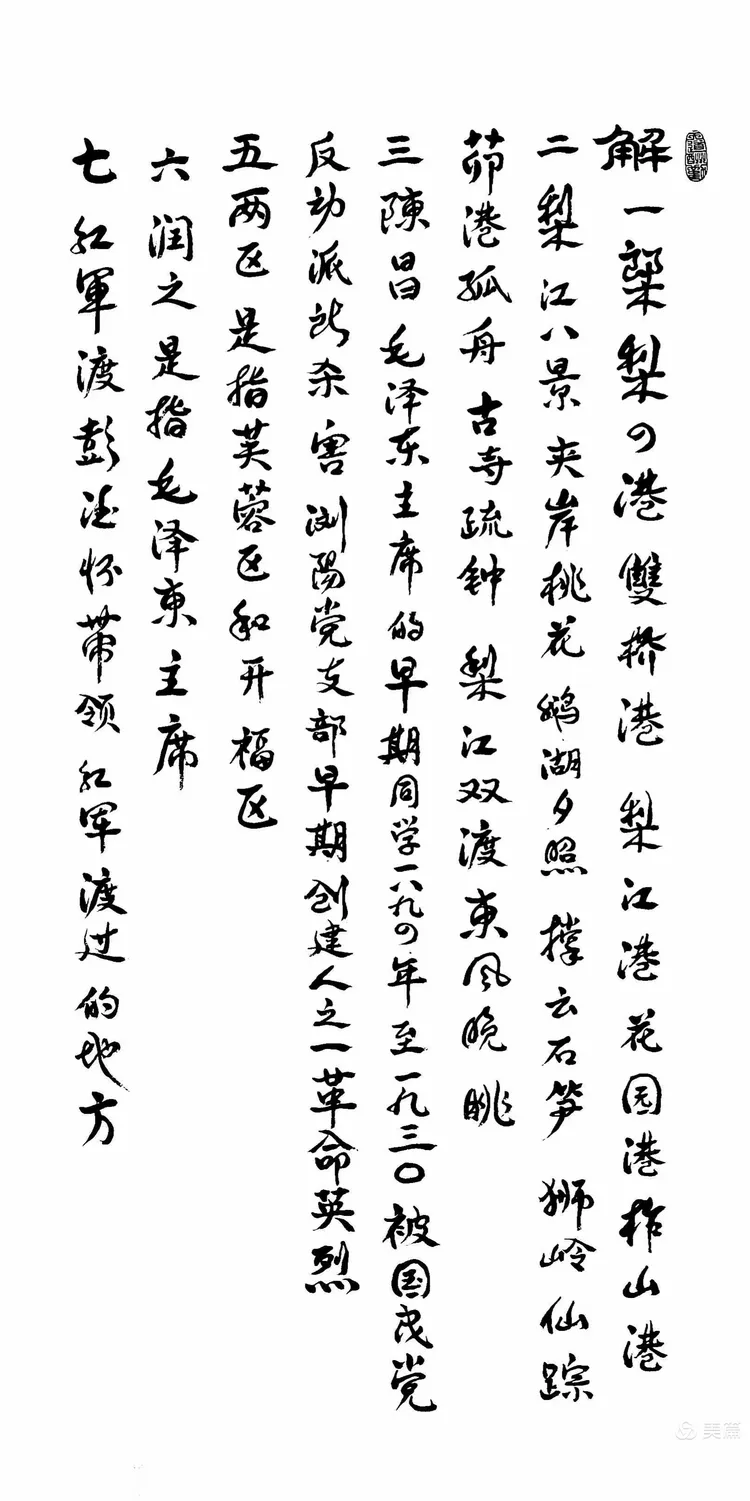 解一㮾梨四港雙桥港 梨江港花园港柞山港
二梨江八景夹岸桃花 鹅湖夕照 撑云石笋 狮岭仙踪
茆港孤舟 古寺疏钟 梨江双渡东风晚眺
三陳昌毛泽东主席的早期同学一八九四年至一九三〇被国民党
反动派所杀害浏陽党支部早期创建人之一革命英烈
五两区是指芙蓉区和开福区
六润之是指毛泽東主席
七红軍渡彭德怀带领红军渡过的地方
美篇